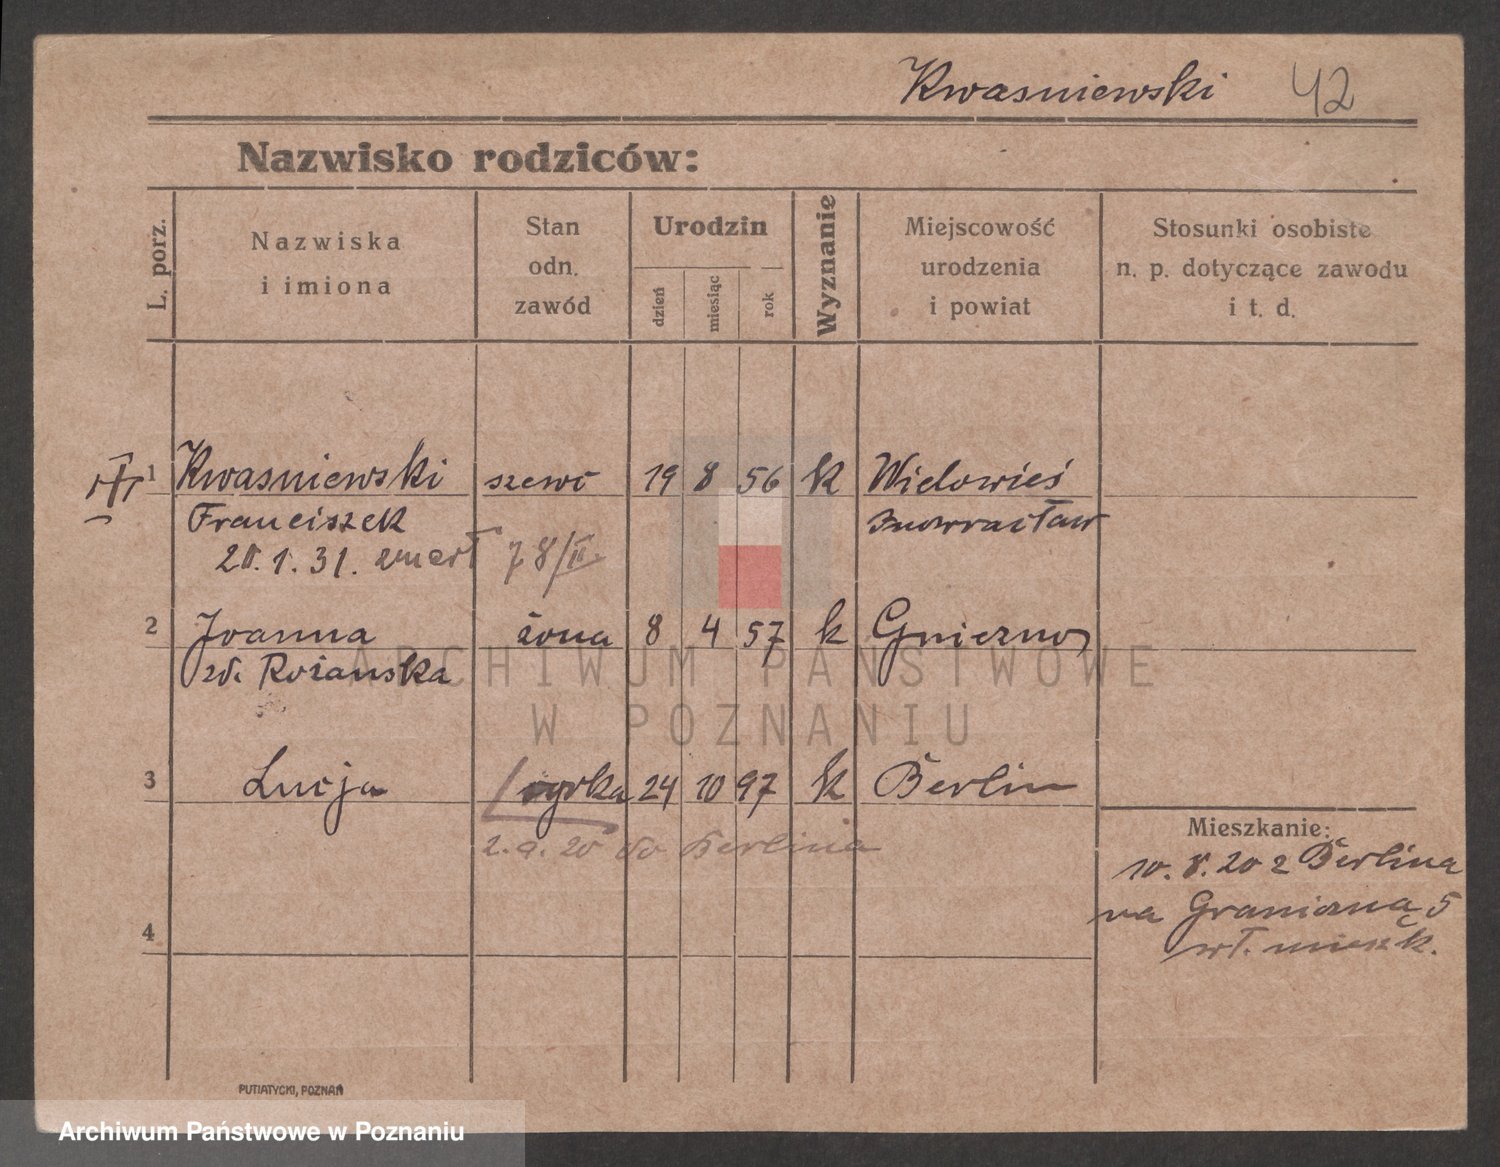 Kwasniewski 42
Nazwisko rodziców:
L. porz.
Nazwiska
i imiona
Stan
odn.
zawód
Urodzin
dzień
miesiąc
rok
Wyznanie
Miejscowość
urodzenia
i powiat
Stosunki osobiste
n. p. dotyczące zawodu
i t. d.
1 Kwasniewski szewc 19 8 56 k Wielowieś
Franciszek Inowracław
1. 31. zmarł
2 Joanna żona 8 4 57 k Gniezno
zd. Rożanska
3 Lucja 24 10 97 k Berlin
2. 9. 20 do Berlina
4
Mieszkanie:
10. 8. 20 z Berlina
na Graniczną 5
wł. mieszk.
PUTIATYCKI, POZNAŃ
ARCHIWUM PAŃSTWOWE
W POZNANIU
Archiwum Państwowe w Poznaniu